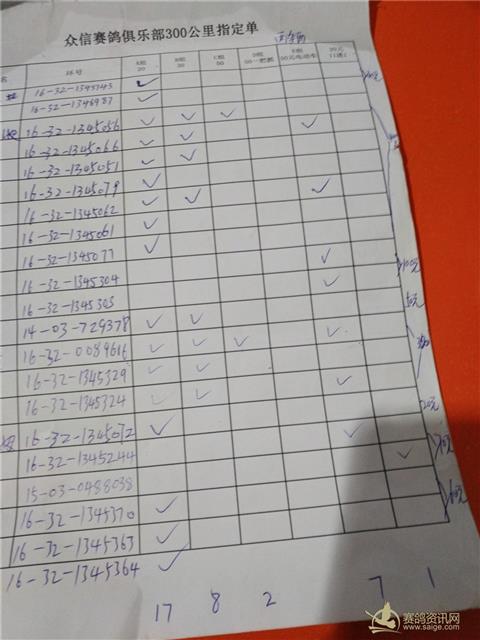 众信赛鸽俱乐部300公里指定单
名 环号 A组 20 B组 30 C组 50 D组 E组
16-32-1345343
16-32-1346987
16-32-1345056
16-32-1345066
16-32-1345051
16-32-1345079
16-32-1345062
16-32-1345061
16-32-1345077
16-32-1345304
16-32-1345303
14-03-729378
16-32-0089616
16-32-1345329
16-32-1345324
16-32-1345072
16-32-1345244
15-03-0488038
16-32-1345370
16-32-1345363
16-32-1345364
17 8 2 7 1
赛鸽资讯网
www.saige.com